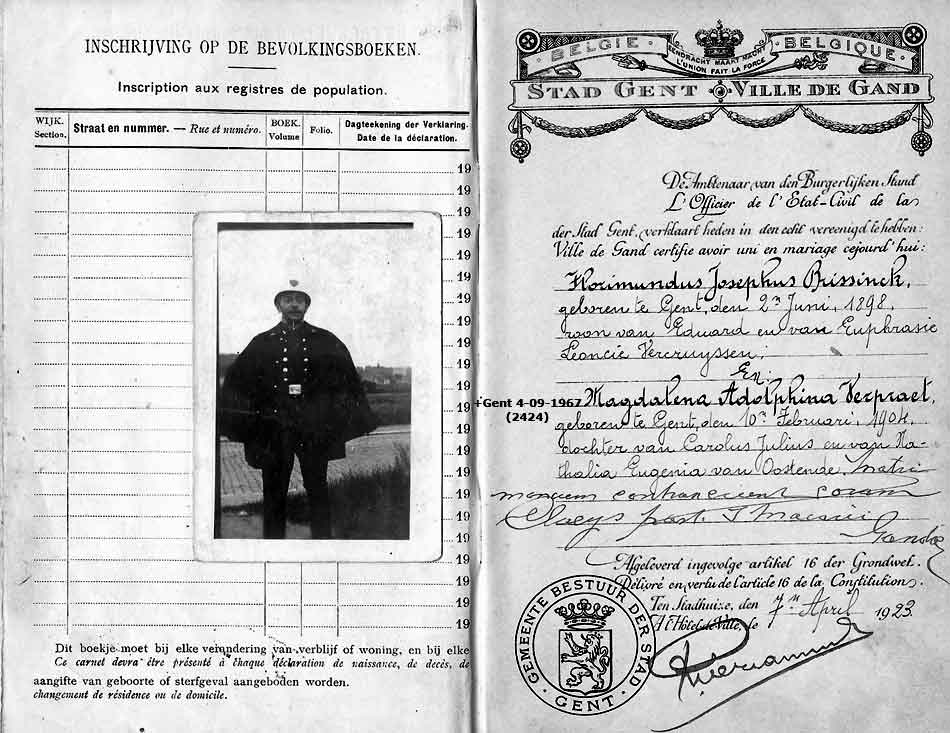 INSCHRIJVING OP DE BEVOLKINGSBOEKEN.
Inscription aux registres de population.
WIJK. Section. Straat en nummer. — Rue et numéro. BOEK. Volume Folio. Dagteekening der Verklaring. Date de la déclaration.
19
19
19
19
19
19
19
19
19
19
19
19
19
19
19
19
19
19
19
19
19
19
Dit boekje moet bij elke verandering van verblijf of woning, en bij elke
Ce carnet devra être présenté à chaque déclaration de naissance, de decès, de
aangifte van geboorte of sterfgeval aangeboden worden.
changement de résidence ou de domicile.
BELGIE EENDRACHT MAAKT MACHT L'UNION FAIT LA FORCE BELGIQUE
STAD GENT VILLE DE GAND
De Ambtenaar van den Burgerlijken Stand
L'Officier de l'Etat-Civil de la
der Stad Gent, verklaart heden in den echt vereenigd te hebben:
Ville de Gand certifie avoir uni en mariage cejourd'hui:
Florimundus Josephus Brissinck,
geboren te Gent, den 2n Juni 1898
zoon van Eduard en van Euphrasie
Leoncie Vercruyssen;
En:
+Gent 4-09-1967 Magdalena Adolphina Verpraet,
(2424)
geboren te Gent, den 10n Februari, 1904
dochter van Carolus Julius en van Na-
thalia Eugenia van Oostende, matri
monium contraxerunt coram
Claeys past. S Macarii
Gandae
Afgeleverd ingevolge artikel 16 der Grondwet.
Délivré en vertu de l'article 16 de la Constitution.
Ten Stadhuize, den 7n April 1923
A l'Hôtel de Ville, le
GEMEENTE BESTUUR DER STAD GENT